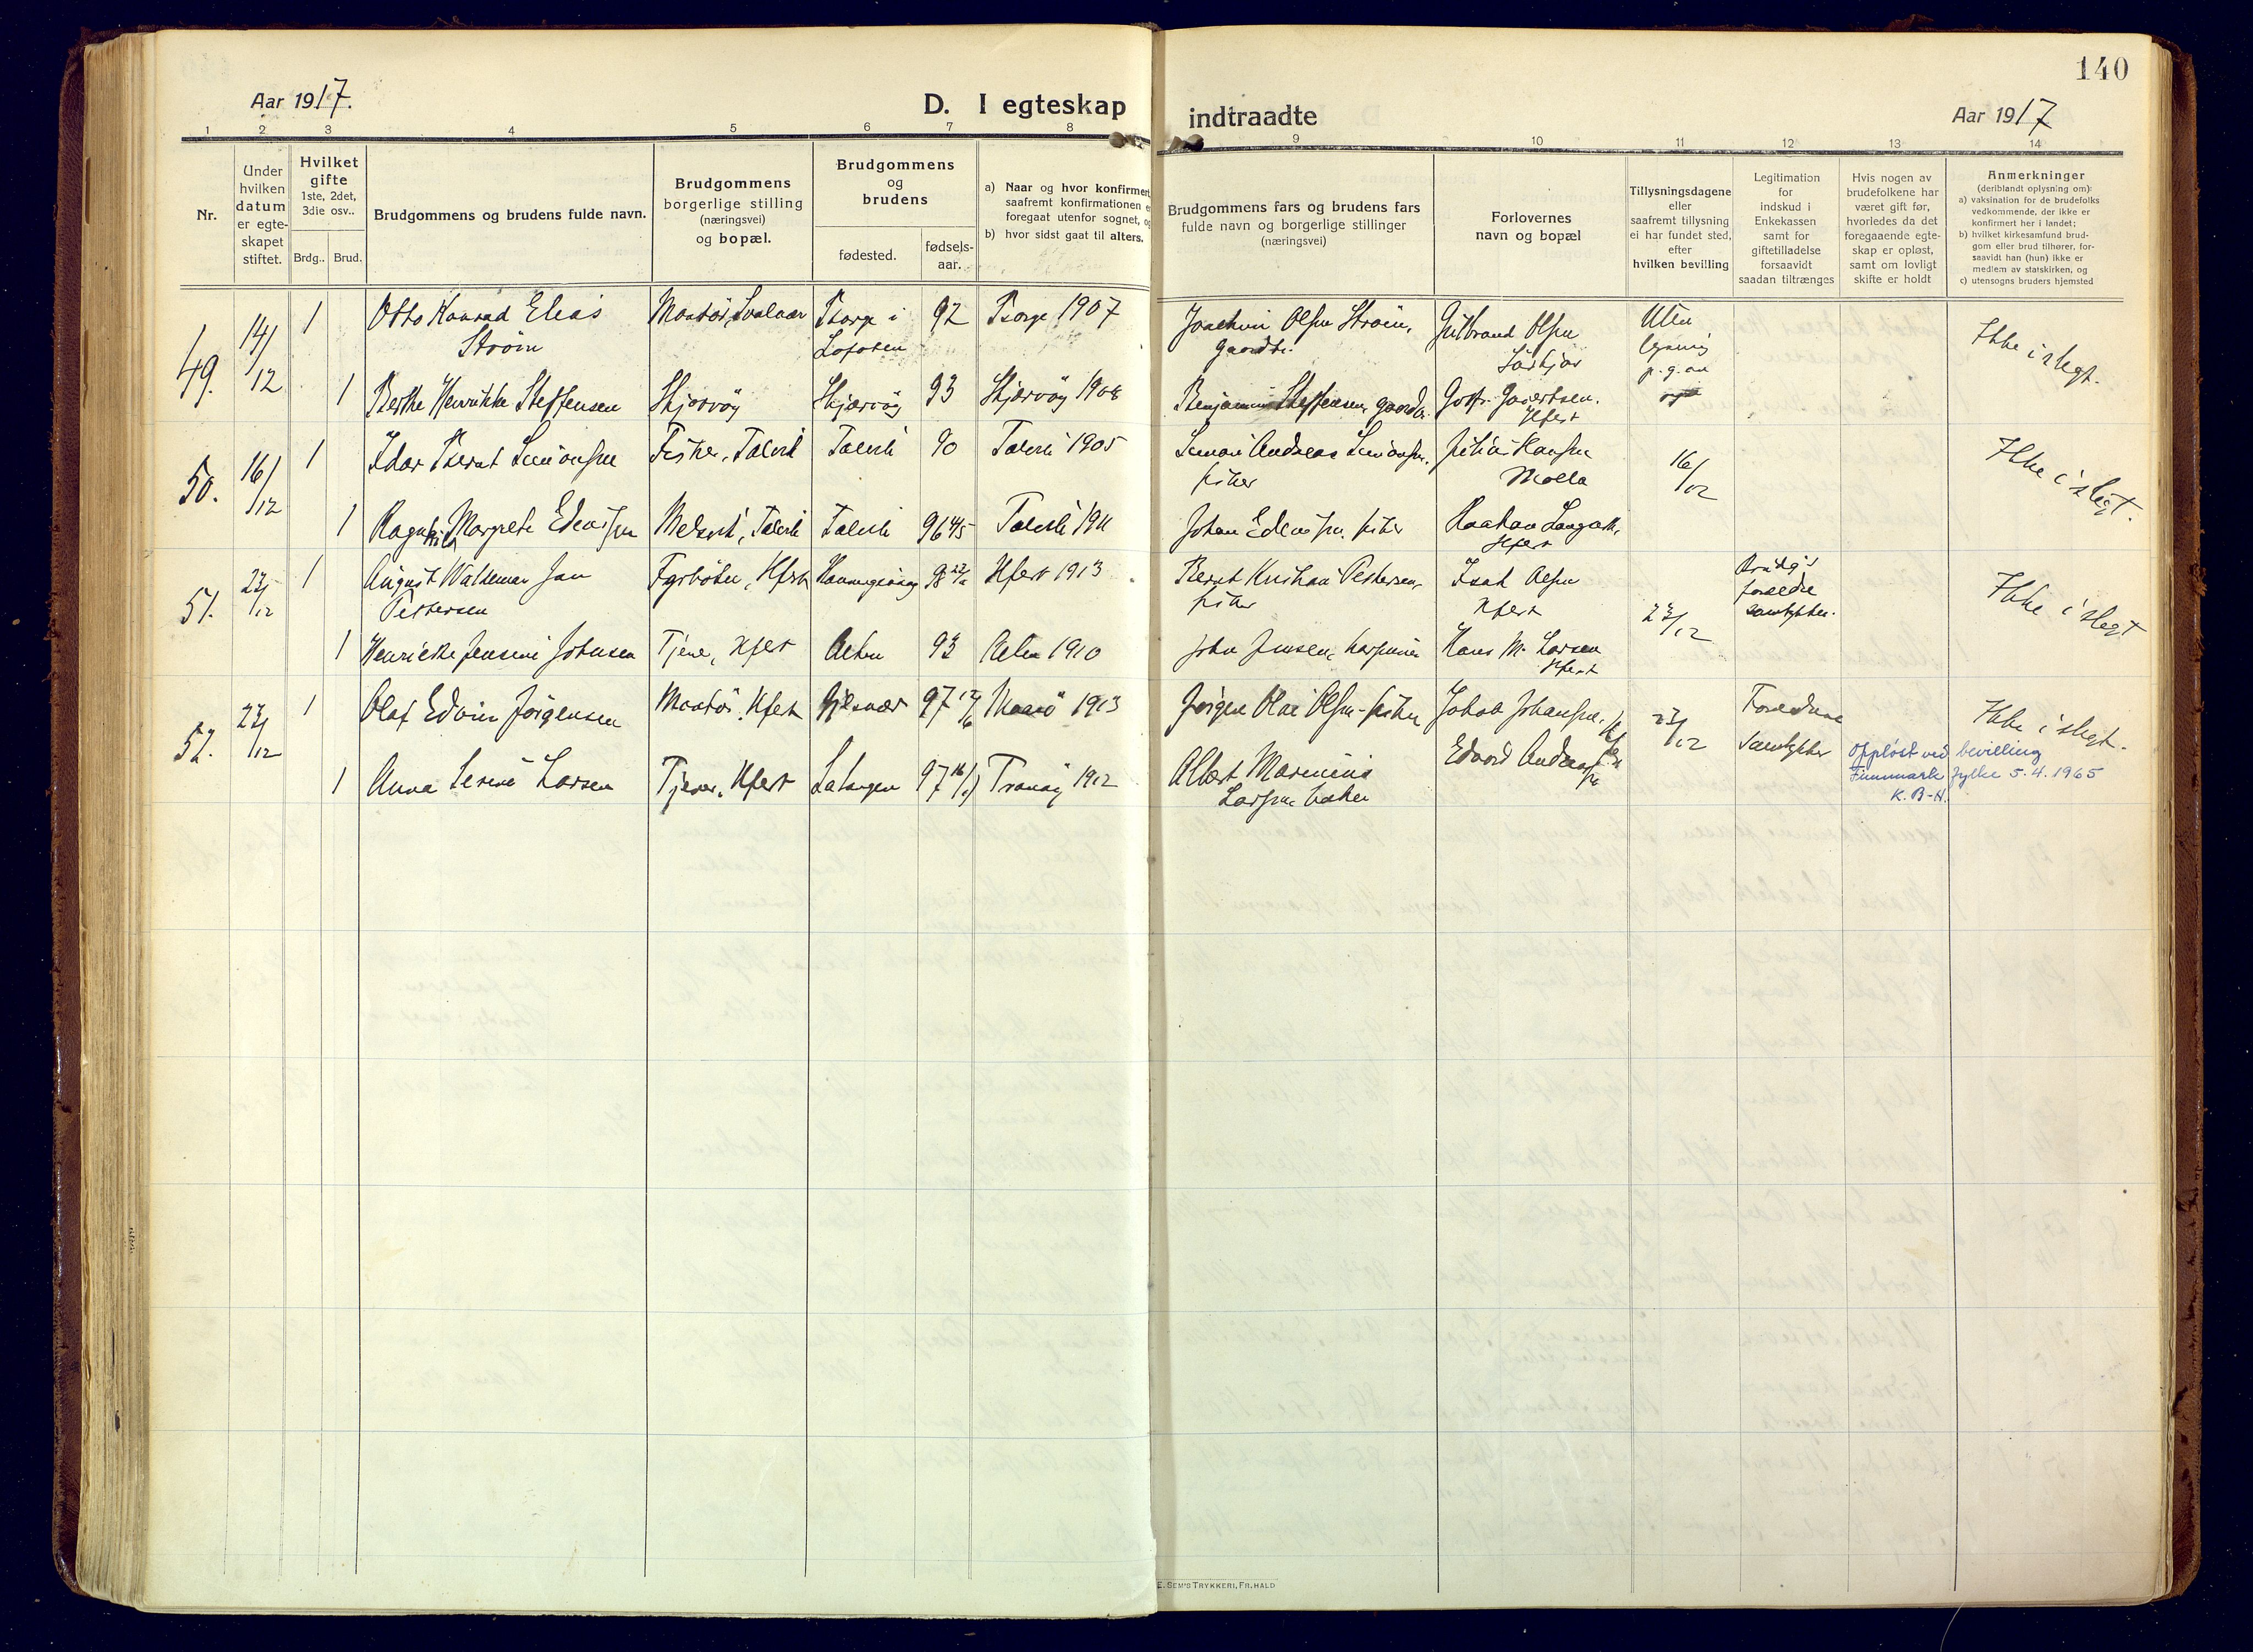 140
Aar 1917.
D. I egteskap
indtraadte
Aar 1917
1 2 3 4 5 6 7 8 9 10 11 12 13 14
Nr.
Under
hvilken
datum
er egte-
skapet
stiftet.
Hvilket
gifte
1ste, 2det,
3die osv..
Brdg.. Brud.
Brudgommens og brudens fulde navn.
Brudgommens
borgerlige stilling
(næringsvei)
og bopæl.
Brudgommens
og
brudens
fødested.
fødsels-
aar.
a) Naar og hvor konfirmert
saafremt konfirmationen e
foregaat utenfor sognet, og
b) hvor sidst gaat til alters.
Brudgommens fars og brudens fars
fulde navn og borgerlige stillinger
(næringsvei)
Forlovernes
navn og bopæl
Tillysningsdagene
eller
saafremt tillysning
ei har fundet sted,
efter
hvilken bevilling
Legitimation
for
indskud i
Enkekassen
samt for
giftetilladelse
forsaavidt
saadan tiltrænges
Hvis nogen av
brudefolkene har
været gift før,
hvorledes da det
foregaaende egte-
skap er opløst,
samt om lovligt
skifte er holdt
Anmerkninger
(deriblandt oplysning om):
a) vaksination for de brudefolks
vedkommende, der ikke er
konfirmert her i landet;
b) hvilket kirkesamfund brud-
gom eller brud tilhører, for-
saavidt han (hun) ikke er
medlem av statskirken, og
c) utensogns bruders hjemsted
49. 14/12 1 Otto Konrad Elias
Strøm
Svolvær
Borge i
Lofoten
92 Borge 1907
Joachim Olsen Strøm,
gaardbr.
Gulbrand Olsen
Uten
lysning
p. g. av
Ikke i slegt.
1 Berthe Henrikke Steffensen Skjærvöy Skjærvöy 93 Skjærvöy 1908
Benjamin Steffensen, gaardbr.
Hfest
50. 16/12 1 Idar Bernt Simonsen Fisker, Talvik Talvik 90 Talvik 1905
Simon Andreas Simonsen,
fisker
Hansen
Molla
16/12
Ikke i slegt.
1 Ragnhild Margrete Edvardsen Talvik Talvik 96 4/5 Talvik 1911
Johan fisker
Haakon
Hfest
51. 23/12 1 August Waldemar Jan
Pettersen
Fyrbøter, Hfest 98 Hfest 1913
Bernt Kristian Pettersen,
fisker
Isak Olsen
Hfest
23/12
Brudg's
foreldre
samtykker.
Ikke i slegt
1 Henrikke Jensine Johnsen Tjener, Hfest 93 1910
John Jensen,
Hans M. Larsen
Hfest
52. 23/12 1 Olaf Edvin Jörgensen Matros, Hfest Gjesvær 97 17/6 Maasö 1913
Jörgen Olai Olsen - fisker
Jakob Johansen,
23/12
Foreldrene
samtykker
Ikke i slegt.
Oppløst ved bevilling
Finnmark fylke 5.4.1965
K. B-H.
1 Anna Serine Larsen Tjener, Hfest Salangen 97 Tranöy 1912
Albert Marinius
Larsen,
Edvard Andersen
E. SEM'S TRYKKERI, FR.HALD